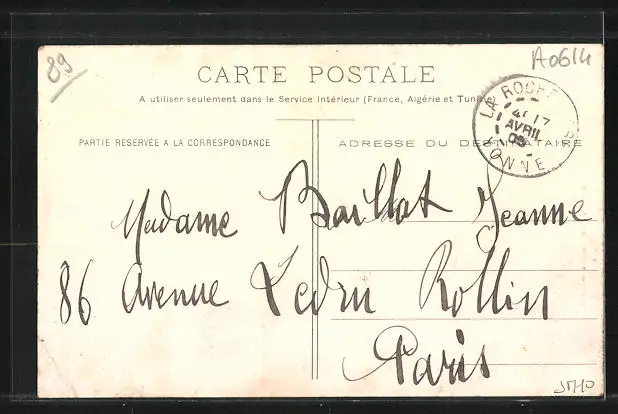 89
A0614
CARTE POSTALE
A utiliser seulement dans le Service Intérieur (France, Algérie et Tunisie
PARTIE RESERVÉE A LA CORRESPONDANCE
ADRESSE DU DESTINATAIRE
LA ROCHE
17
AVRIL
05
YONNE
Madame Baillot Jeanne
86 Avenue Ledru Rollin
Paris